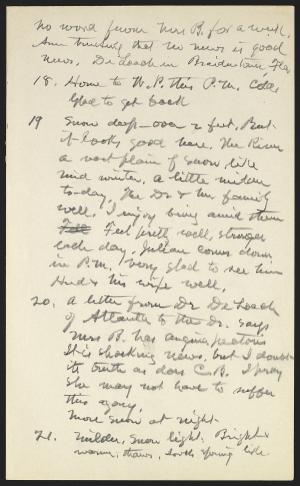 no word from Mrs B. for a week.
Am trusting that no news is good
news. De Loach in Bradentown Fla.
18. Home to W. P. this P.M. Cold
Glad to get back
19 Snow deep - over 2 feet, But
it looks good here. The River
a vast plain of snow like
mid winter. a little milder
to-day, The Dr & his family
well. I enjoy being amid them
Feel pretty well, stronger
each day. Julian comes down
in P.M. very glad to see him
Hud & his wife well,
20. a letter from Dr De Loach
of Atlanta to the Dr. says
Mrs B. has angina pectoris
It is shocking news, but I doubt
its truth as does C.B. I pray
she may not have to suffer
this agony,
more snow at night.
21. milder, Snow light. Bright &
warm, thaws, looks spring like